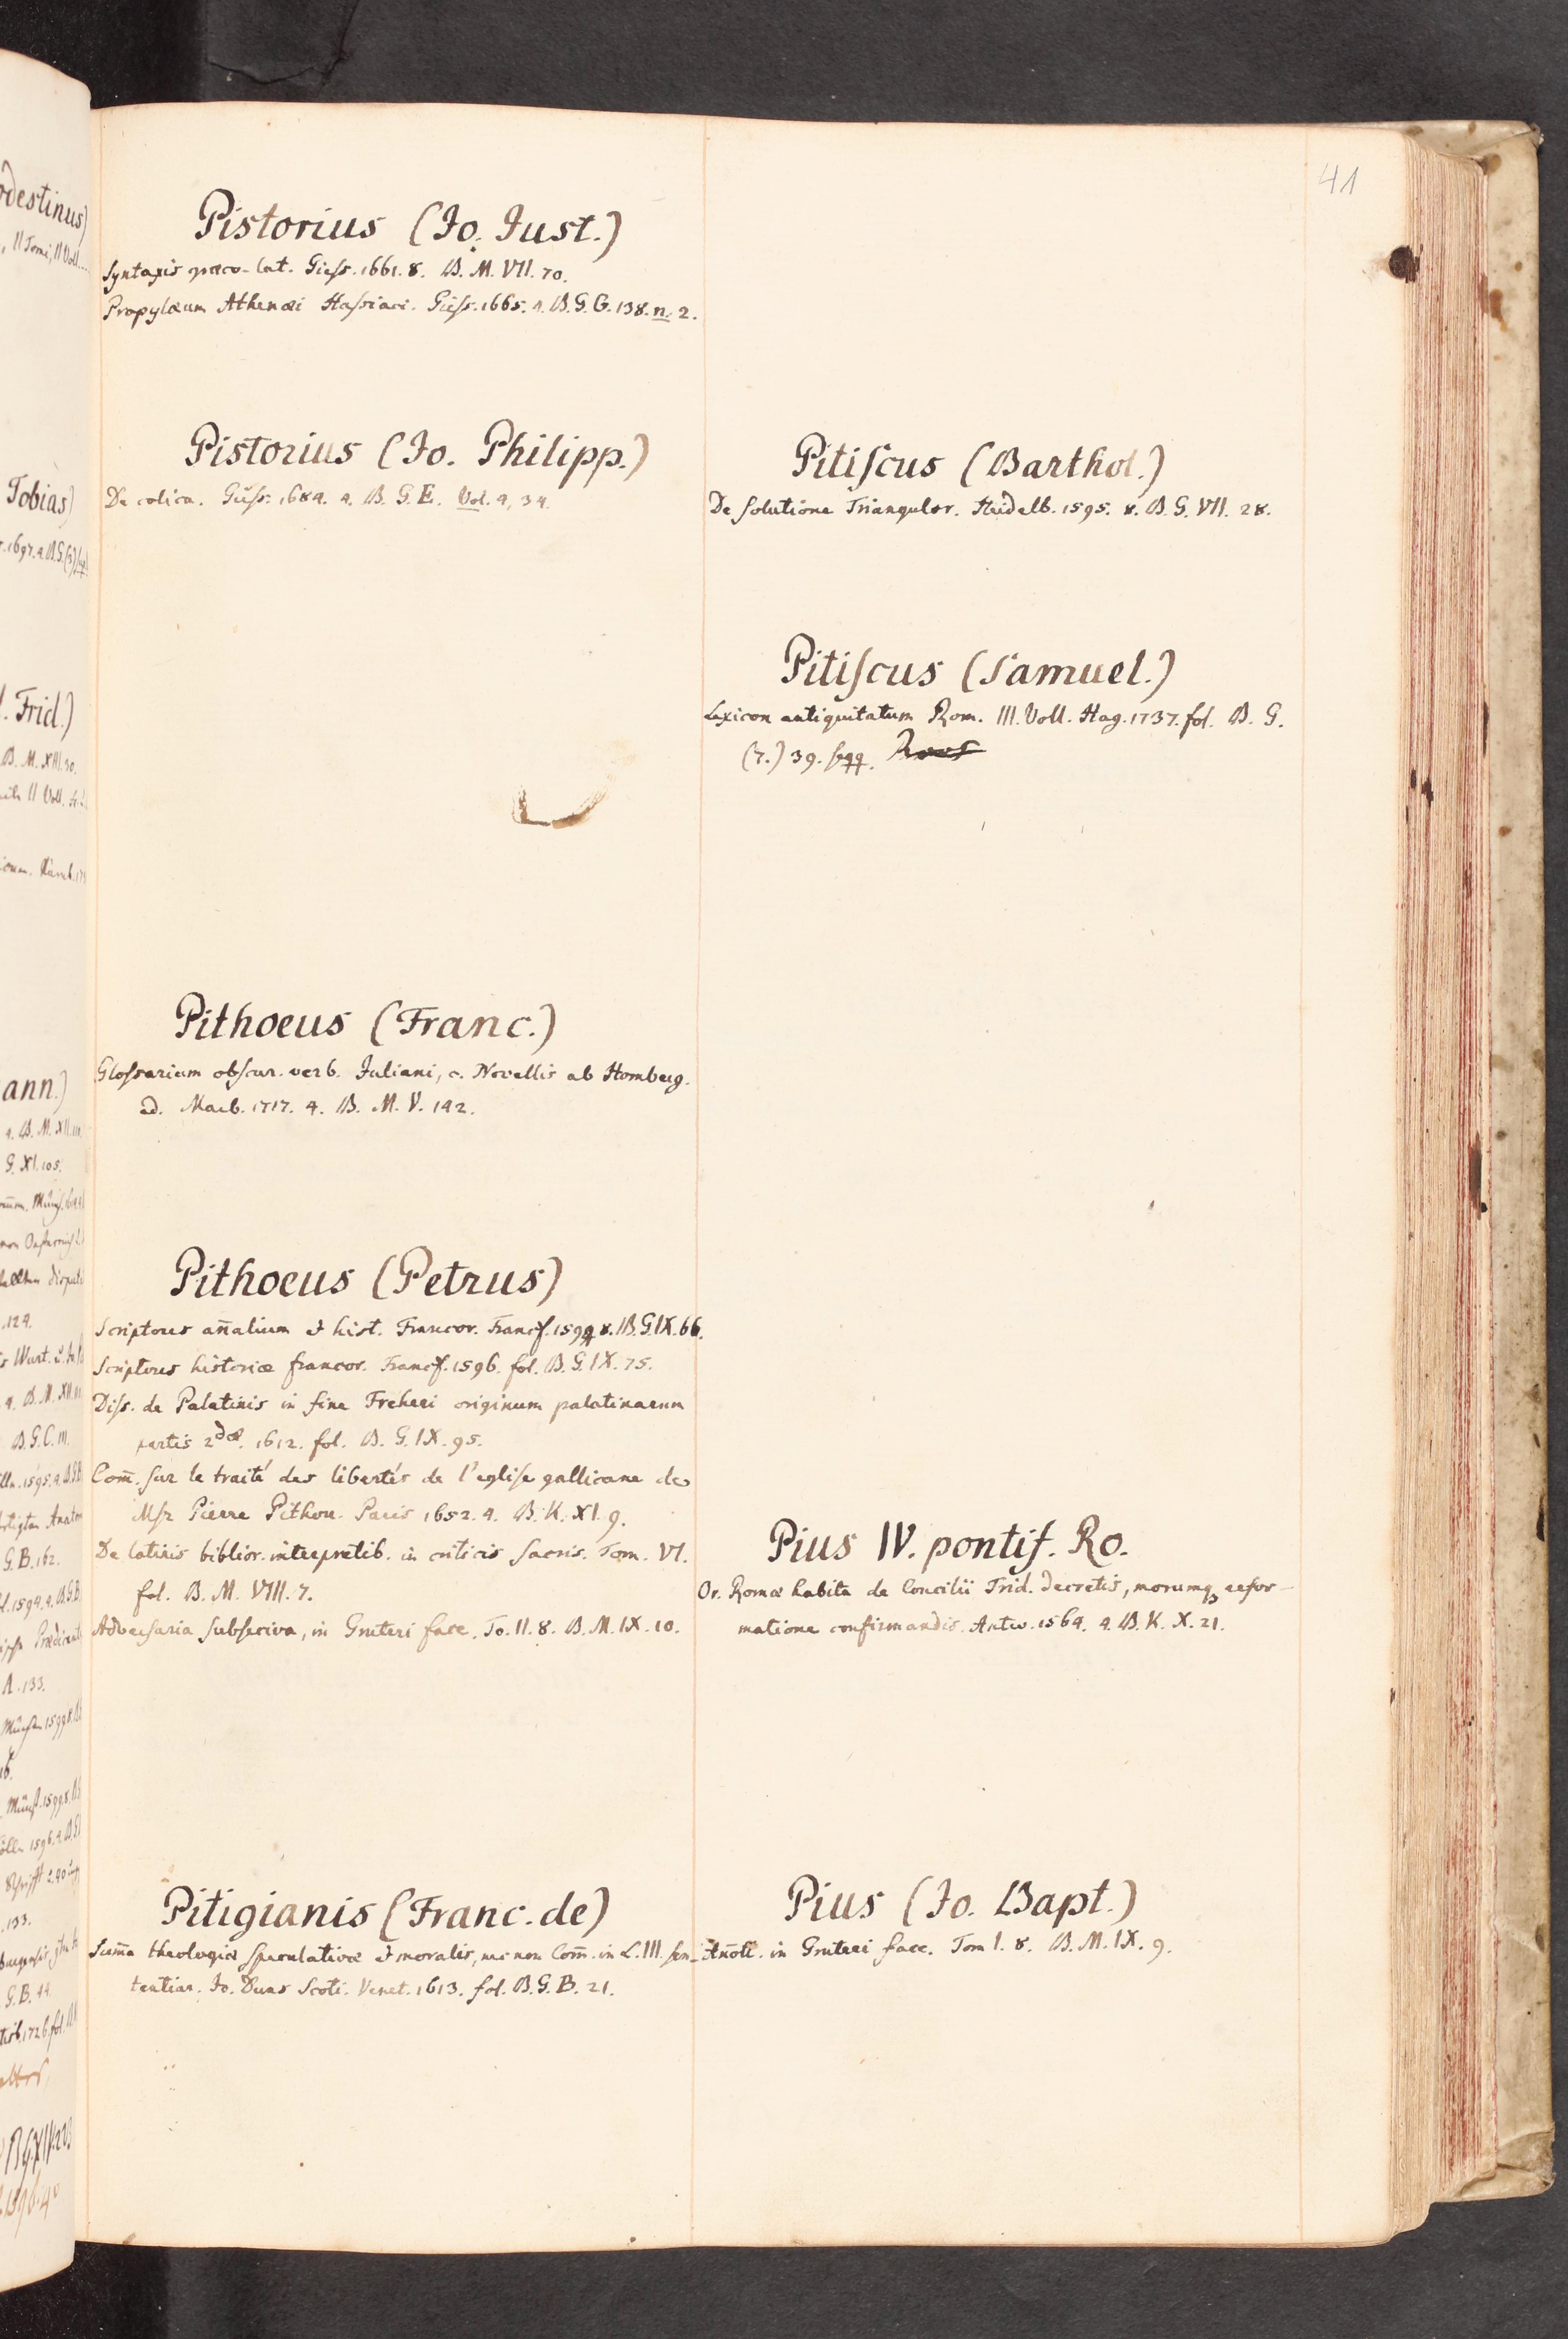 41
Pistorius (Jo. Just.)
Syntaxis græco-lat. Giess. 1661. 8. B. M. VII. 70.
Propylæum Athenæi Hassiaci. Giess. 1665. 4. B. G. G. 138. n. 2.
Pistorius (Jo. Philipp.)
De colica. Giess. 1684. 4. B. G. E. Vol. 4, 34.
Pithoeus (Franc.)
Glossarium obscur. verb. Juliani, c. Novellis ab Homberg.
ed. Marb. 1717. 4. B. M. V. 142.
Pithoeus (Petrus)
Scriptores añalium & hist. Francor. Francf. 1594 8. B. G. IX. 66.
Scriptores historiæ francor. Francf. 1596. fol. B. G. IX. 75.
Diss. de Palatinis in fine Freheri originum palatinarum
partis 2dæ. 1612. fol. B. G. IX. 95.
Com̃. sur le traité des libertés de l'eglise gallicane de
Msr Pierre Pithou. Paris 1652. 4. B. K. XI. 9.
De latinis biblior. interpretib. in criticis sacris. Tom. VI.
fol. B. M. VIII. 7.
Adversaria subseciva, in Gruteri face. To. II. 8. B. M. IX. 10.
Pitigianis (Franc. de)
Sum̃a theologiæ speculativæ & moralis, nec non Com̃. in L. III. sen-
tentiar. Jo. Duns Scoti. Venet. 1613. fol. B. G. B. 21.
Pitiscus (Barthol.)
De solutione Triangulor. Heidelb. 1595. 8. B. G. VII. 28.
Pitiscus (Samuel.)
Lexicon antiquitatum Rom. III. Voll. Hag. 1737. fol. B. G.
(7.) 39. seqq.
Pius IV. pontif. Ro.
Or. Romæ habita de Concilii Trid. decretis, morumq refor-
matione confirmandis. Antw. 1564. 4. B. K. X. 21.
Pius (Jo. Bapt.)
Añott. in Gruteri face. Tom I. 8. B. M. IX. 9.